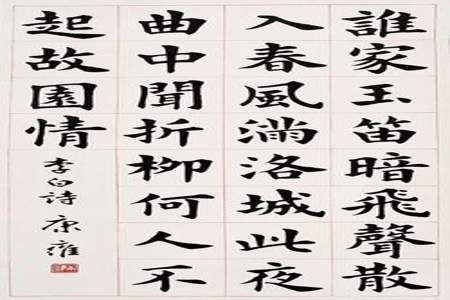 誰家玉笛暗飛聲散
入春風滿洛城此夜
曲中聞折柳何人不
起故園情
李白詩 康雍